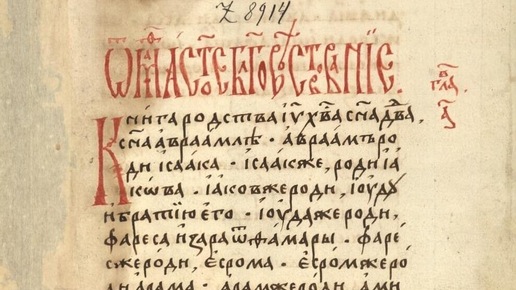 Z 8914
Ѿ ма҃ѳ ст҃ое бл҃говѣствованїе.
гла҃в
а҃
Книга родства і҃у х҃ва сн҃а дв҃да,
сн҃а авраамлѣ · авраамъ ро
ди ісаака · ісаакже, роди іа
кѡва · іаковже роди, іоуду
и братїю его · іоудаже роди,
фареса и зара ѿ фамары · фаре
сже роди, есрома · есромже ро
ди арама · арамже роди ами